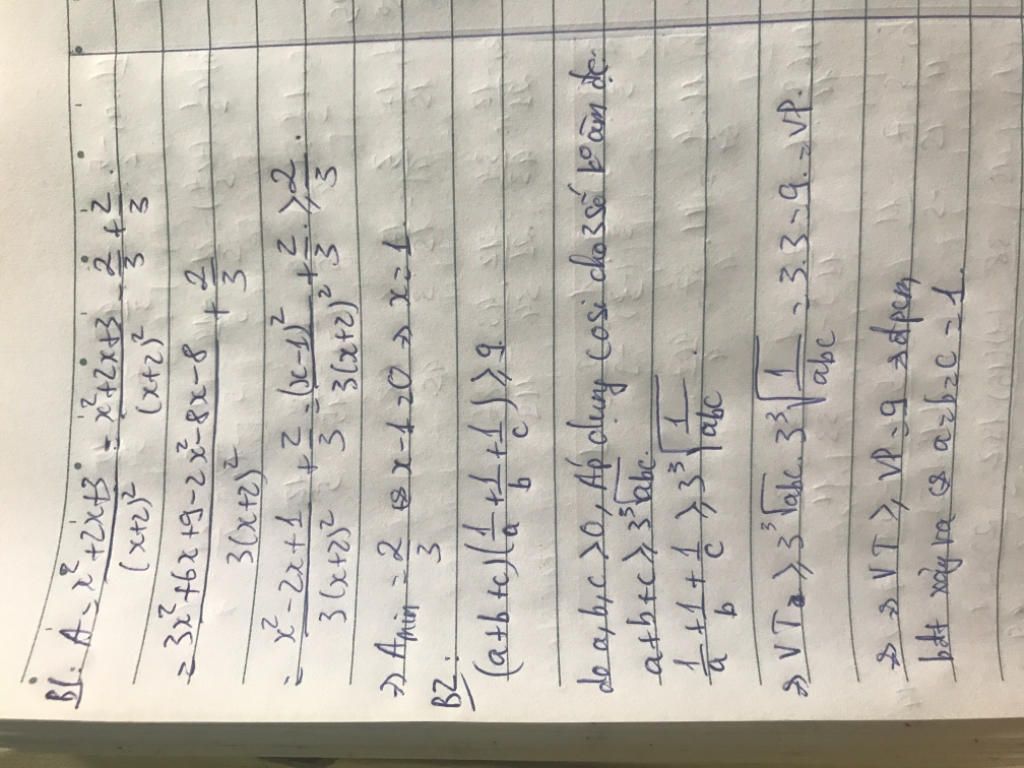 B1: A = x² + 2x + 3 / (x+2)² = x² + 2x + 3 / (x+2)² - 2/3 + 2/3.
= 3x² + 6x + 9 - 2x² - 8x - 8 / 3(x+2)² + 2/3
= x² - 2x + 1 / 3(x+2)² + 2/3 = (x-1)² / 3(x+2)² + 2/3 ≥ 2/3.
⇒ Amin = 2/3 ⇔ x - 1 = 0 ⇒ x = 1
B2:
(a+b+c)(1/a + 1/b + 1/c) ≥ 9
do a, b, c > 0, Áp dụng cosi cho 3 số ko âm đc.
a+b+c ≥ 3∛abc.
1/a + 1/b + 1/c ≥ 3∛1/abc.
⇒ VT ≥ 3∛abc. 3∛1/abc = 3.3 = 9 = VP.
⇒ VT ≥ VP = 9 ⇒ đpcm
bđt xảy ra ⇔ a=b=c=1.